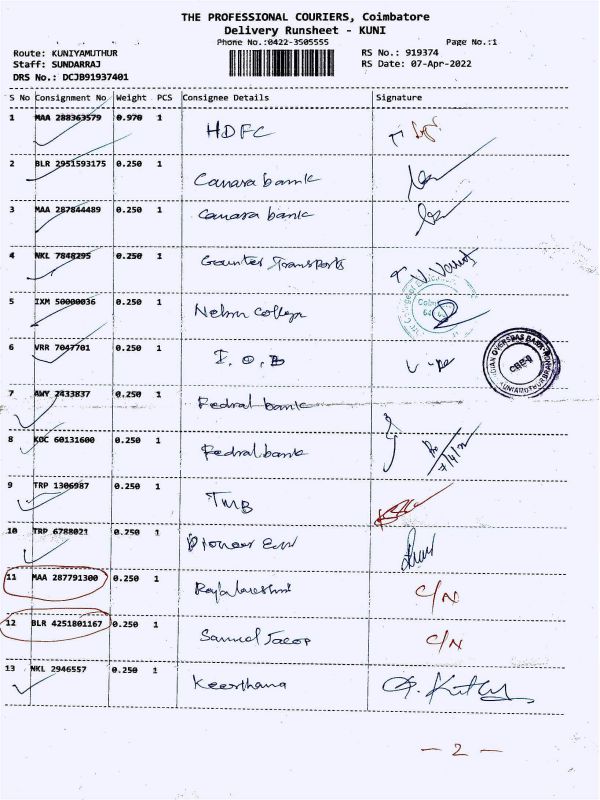 THE PROFESSIONAL COURIERS, Coimbatore
Delivery Runsheet - KUNI
Phone No.:0422-3505555 Page No.:1
Route: KUNIYAMUTHUR RS No.: 919374
Staff: SUNDARRAJ RS Date: 07-Apr-2022
DRS No.: DCJB91937401
S No Consignment No Weight PCS Consignee Details Signature
1 MAA 288363579 0.970 1 HDFC
2 BLR 2951593175 0.250 1 Canara bank
3 MAA 287844489 0.250 1 Canara bank
4 NKL 7848295 0.250 1 Transports
5 IXM 50000036 0.250 1 College
6 VRR 7047701 0.250 1 I.O.B
7 AWY 2433837 0.250 1 Fedral bank
8 KOC 60131600 0.250 1 Fedral bank
7/4/22
9 TRP 1306987 0.250 1 TMB
10 TRP 6788021 0.250 1 Pioneer
11 MAA 287791300 0.250 1 C/N
12 BLR 4251801167 0.250 1 Samuel Jacop C/N
13 NKL 2946557 0.250 1 Keerthana
- 2 -